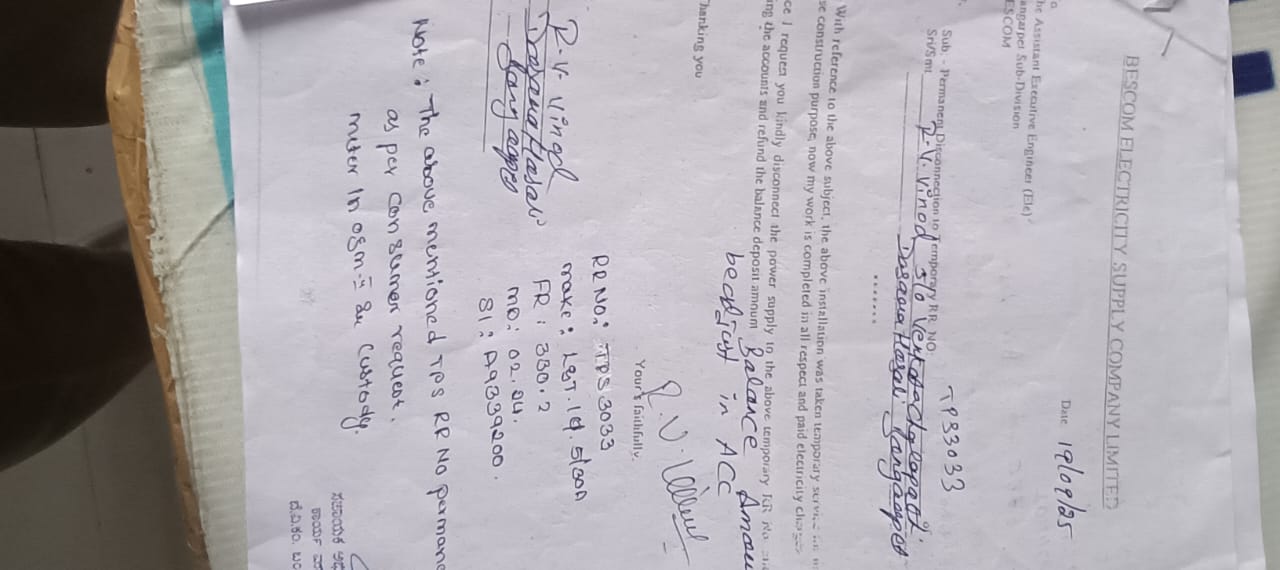 BESCOM ELECTRICITY SUPPLY COMPANY LIMITED
Date 19/09/25
he Assistant Executive Engineer (Ele)
angarpet Sub-Division
ESCOM
Sub. - Permanent Disconnection to Temporary RR. NO. TPS3033
Sri/Smt R.V. Vinod S/o
Dasara Hosali
.......
With reference to the above subject, the above installation was taken temporary service
se construction purpose, now my work is completed in all respect and paid electricity
ce I request you kindly disconnect the power supply to the above temporary RR No.
ing the accounts and refund the balance deposit amount Balance Amou
in ACC
hanking you
Your's faithfully,
R.V. Vinod
Dasara Hosali
RR NO: TPS3033
make: L&T. 1Ø. 5/30A
FR: 330.2
MD: 02.04.
Sl: A9339200.
Note: The above mentioned TPS RR No permane
as per consumer request.
meter in custody.